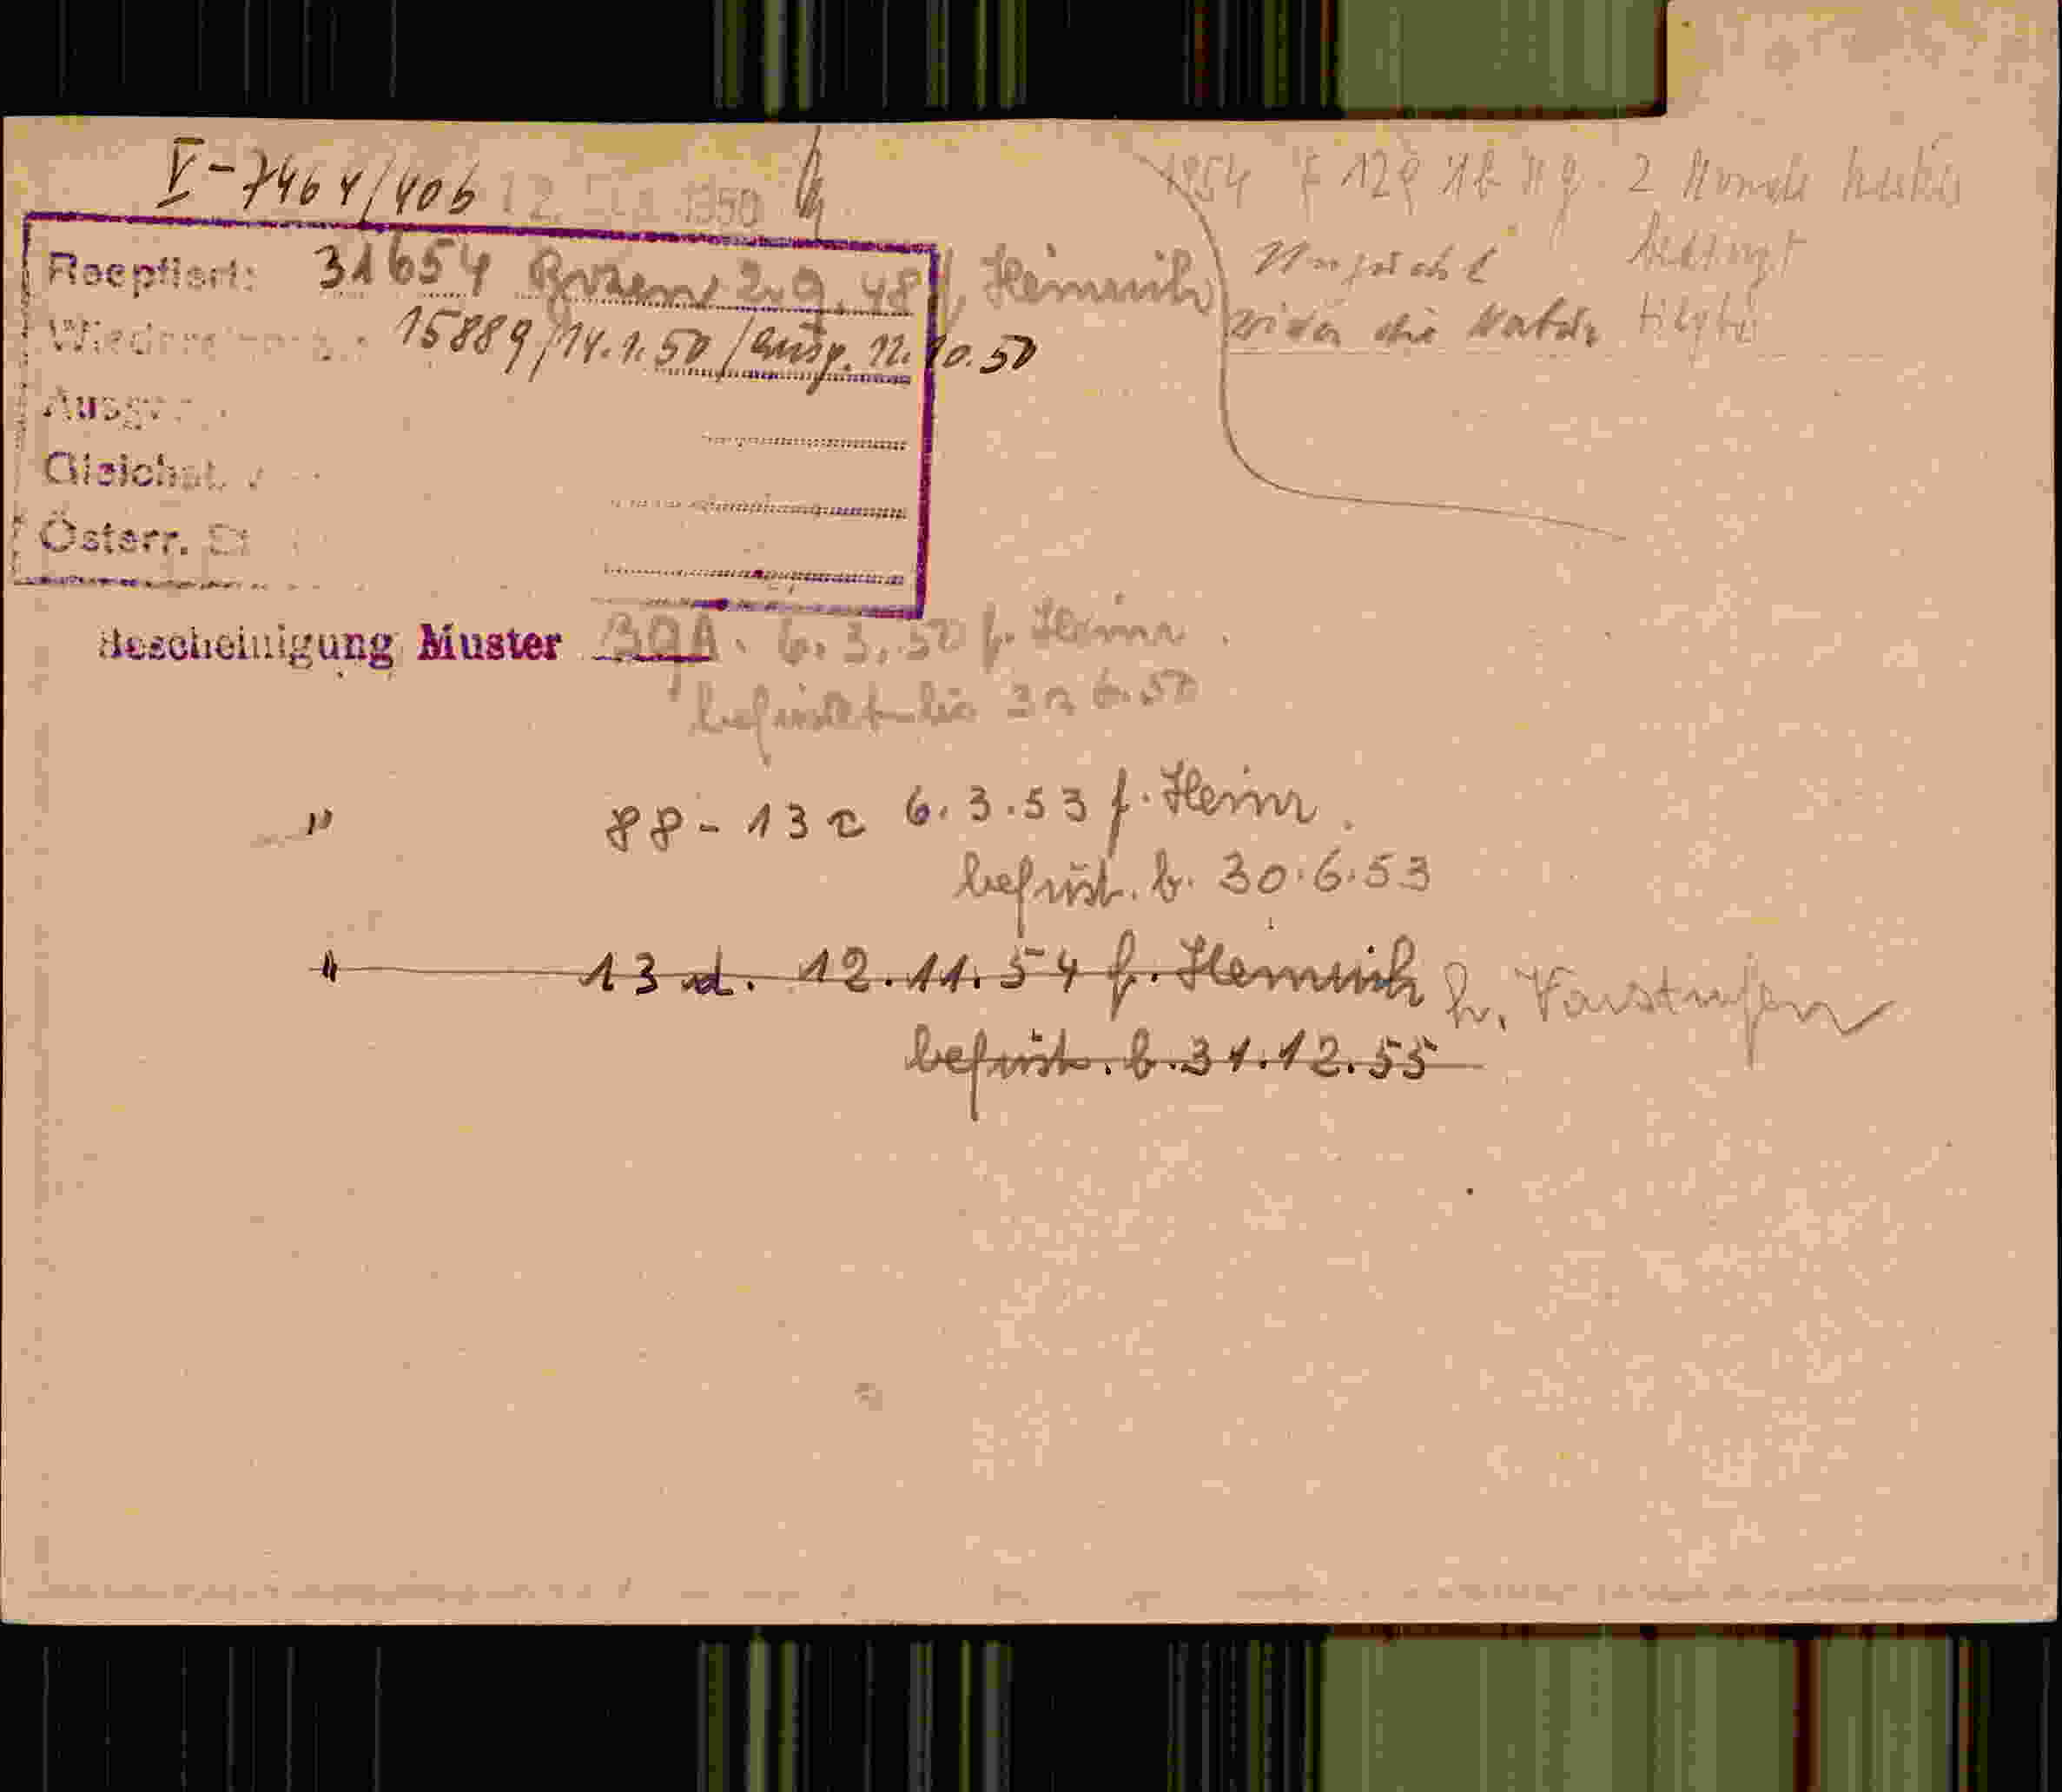 V-7464/406 12. 1950
1954 § 129 Ib 2 Monate
Reoptiert: 31654 Bozen 2.9.48 f. Heinrich
Unzucht bedingt
wider die Natur
15889/14.1.50/ausg. 12.10.50
Ausgew
Gleichst.
Österr. St
Bescheinigung Muster 39A. 6.3.50 f. Heinr.
befristet bis 30.6.50
" 88-13c 6.3.53 f. Heinr.
befrist. b. 30.6.53
" 13 d. 12.11.54 f. Heinrich
befrist. b. 31.12.55